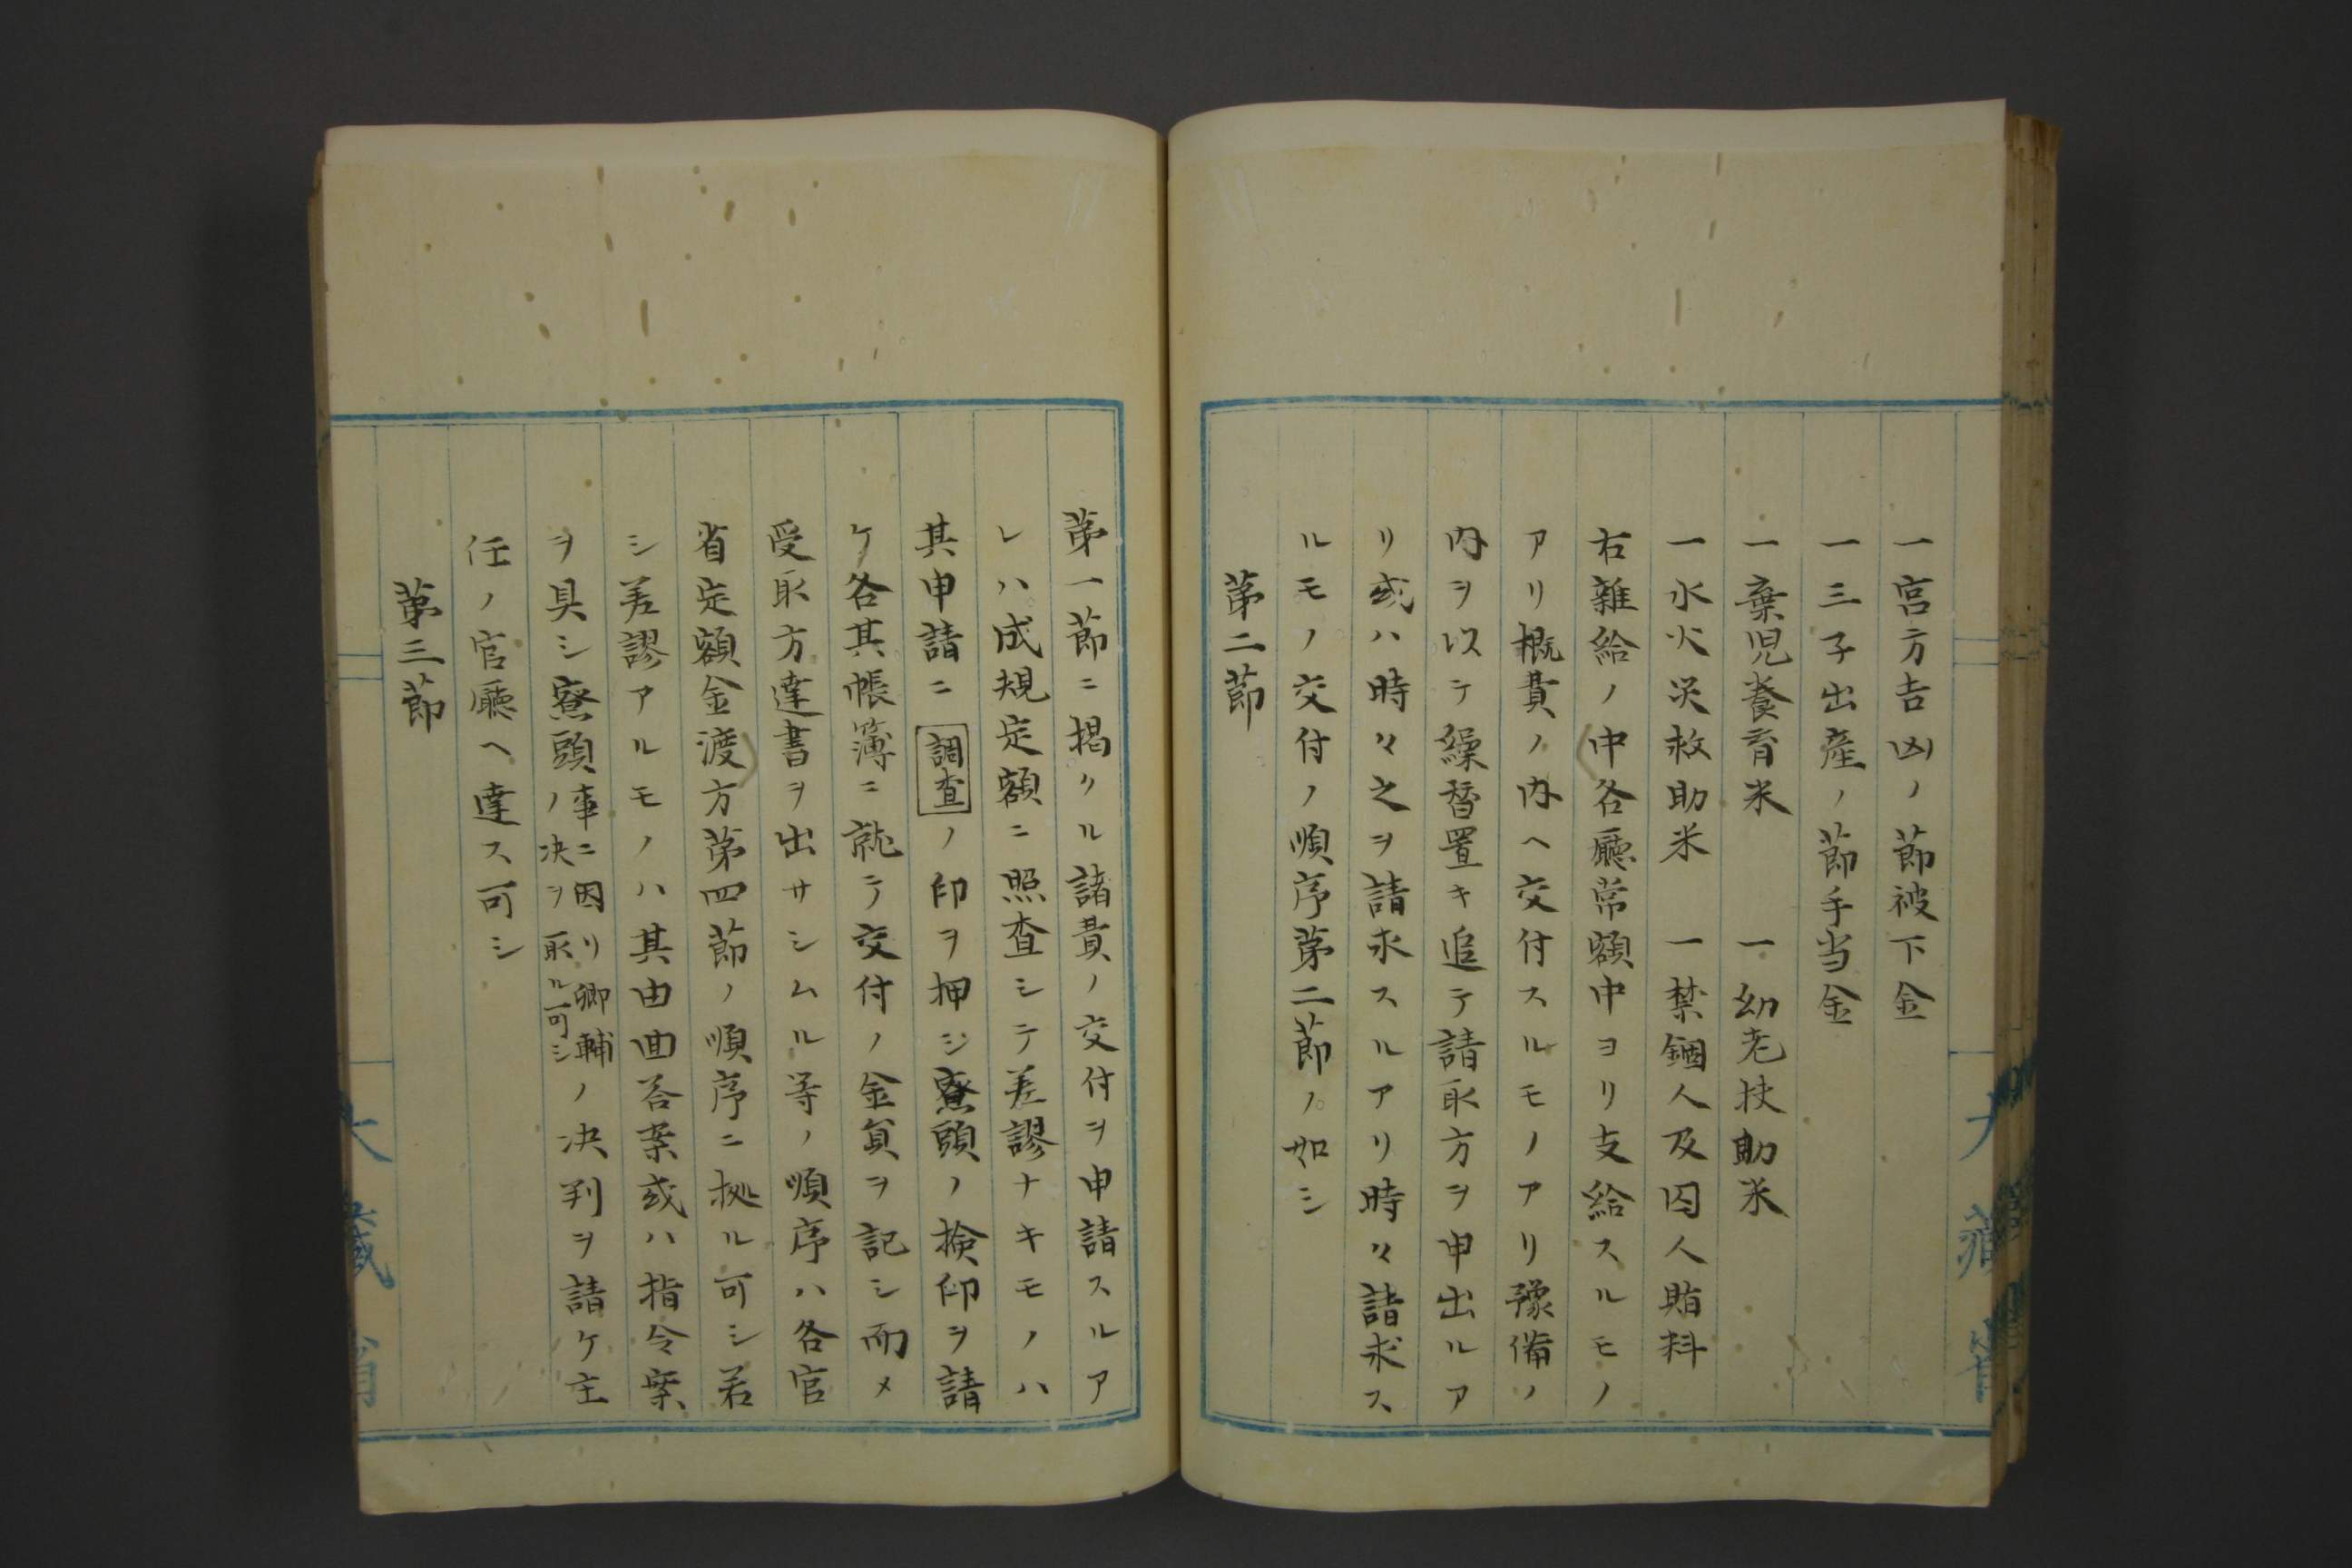 一宮方吉凶ノ節被下金
一三子出産ノ節手当金
一棄児養育米　一幼老扶助米
一水火災救助米　一禁錮人及囚人賄料
右雑給ノ中各廳常額中ヨリ支給スルモノ
アリ概費ノ内ヘ交付スルモノアリ豫備ノ
内ヲ以テ繰替置キ追テ請取方ヲ申出ルア
リ或ハ時々之ヲ請求スルアリ時々請求ス
ルモノ交付ノ順序第二節ノ如シ
第二節
第一節ニ掲クル諸費ノ交付ヲ申請スルア
レハ成規定額ニ照査シテ差謬ナキモノハ
其申請ニ調査ノ印ヲ押シ寮頭ノ検印ヲ請
ケ各其帳簿ニ就テ交付ノ金員ヲ記シ而メ
受取方達書ヲ出サシムル等ノ順序ハ各官
省定額金渡方第四節ノ順序ニ拠ル可シ若
シ差謬アルモノハ其由回答案或ハ指令案
ヲ具シ寮頭事ニ因リ卿輔ノ決ヲ取ル可シノ決判ヲ請ケ主
任ノ官廳ヘ達ス可シ
第三節
大藏省